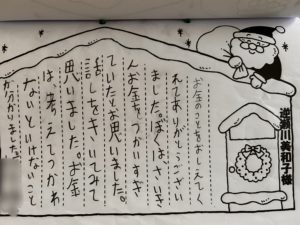 お金のことをおしえてく
れてありがとうござい
ました。ぼくは、さいき
んお金をつかいすぎ
ていたとお思いました。
話しをきいてみて
思いました。お金
は、考えてつかわ
ないといけないこと
が分かりました。
逆瀬川美和子様